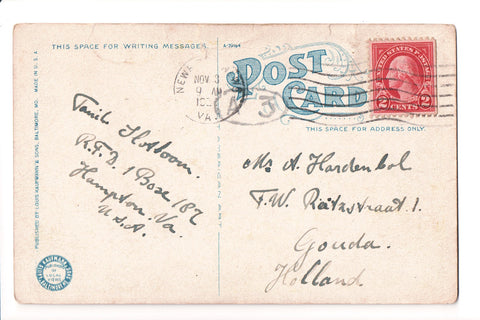 MADE IN U.S.A.
THIS SPACE FOR WRITING MESSAGES
A-79164
POST
CARD
THIS SPACE FOR ADDRESS ONLY.
NEW
NOV 3
9 AM
VA.
A 3
UNITED STATES POSTAGE
2 CENTS 2
R.F.D. 1 Box 187
Hampton. Va.
U.S.A.
Mr A Hardenbol
F.W. Reitzstraat 1.
Gouda.
Holland
PUBLISHED BY LOUIS KAUFMANN & SONS, BALTIMORE, MD.
LOCAL
VIEWS